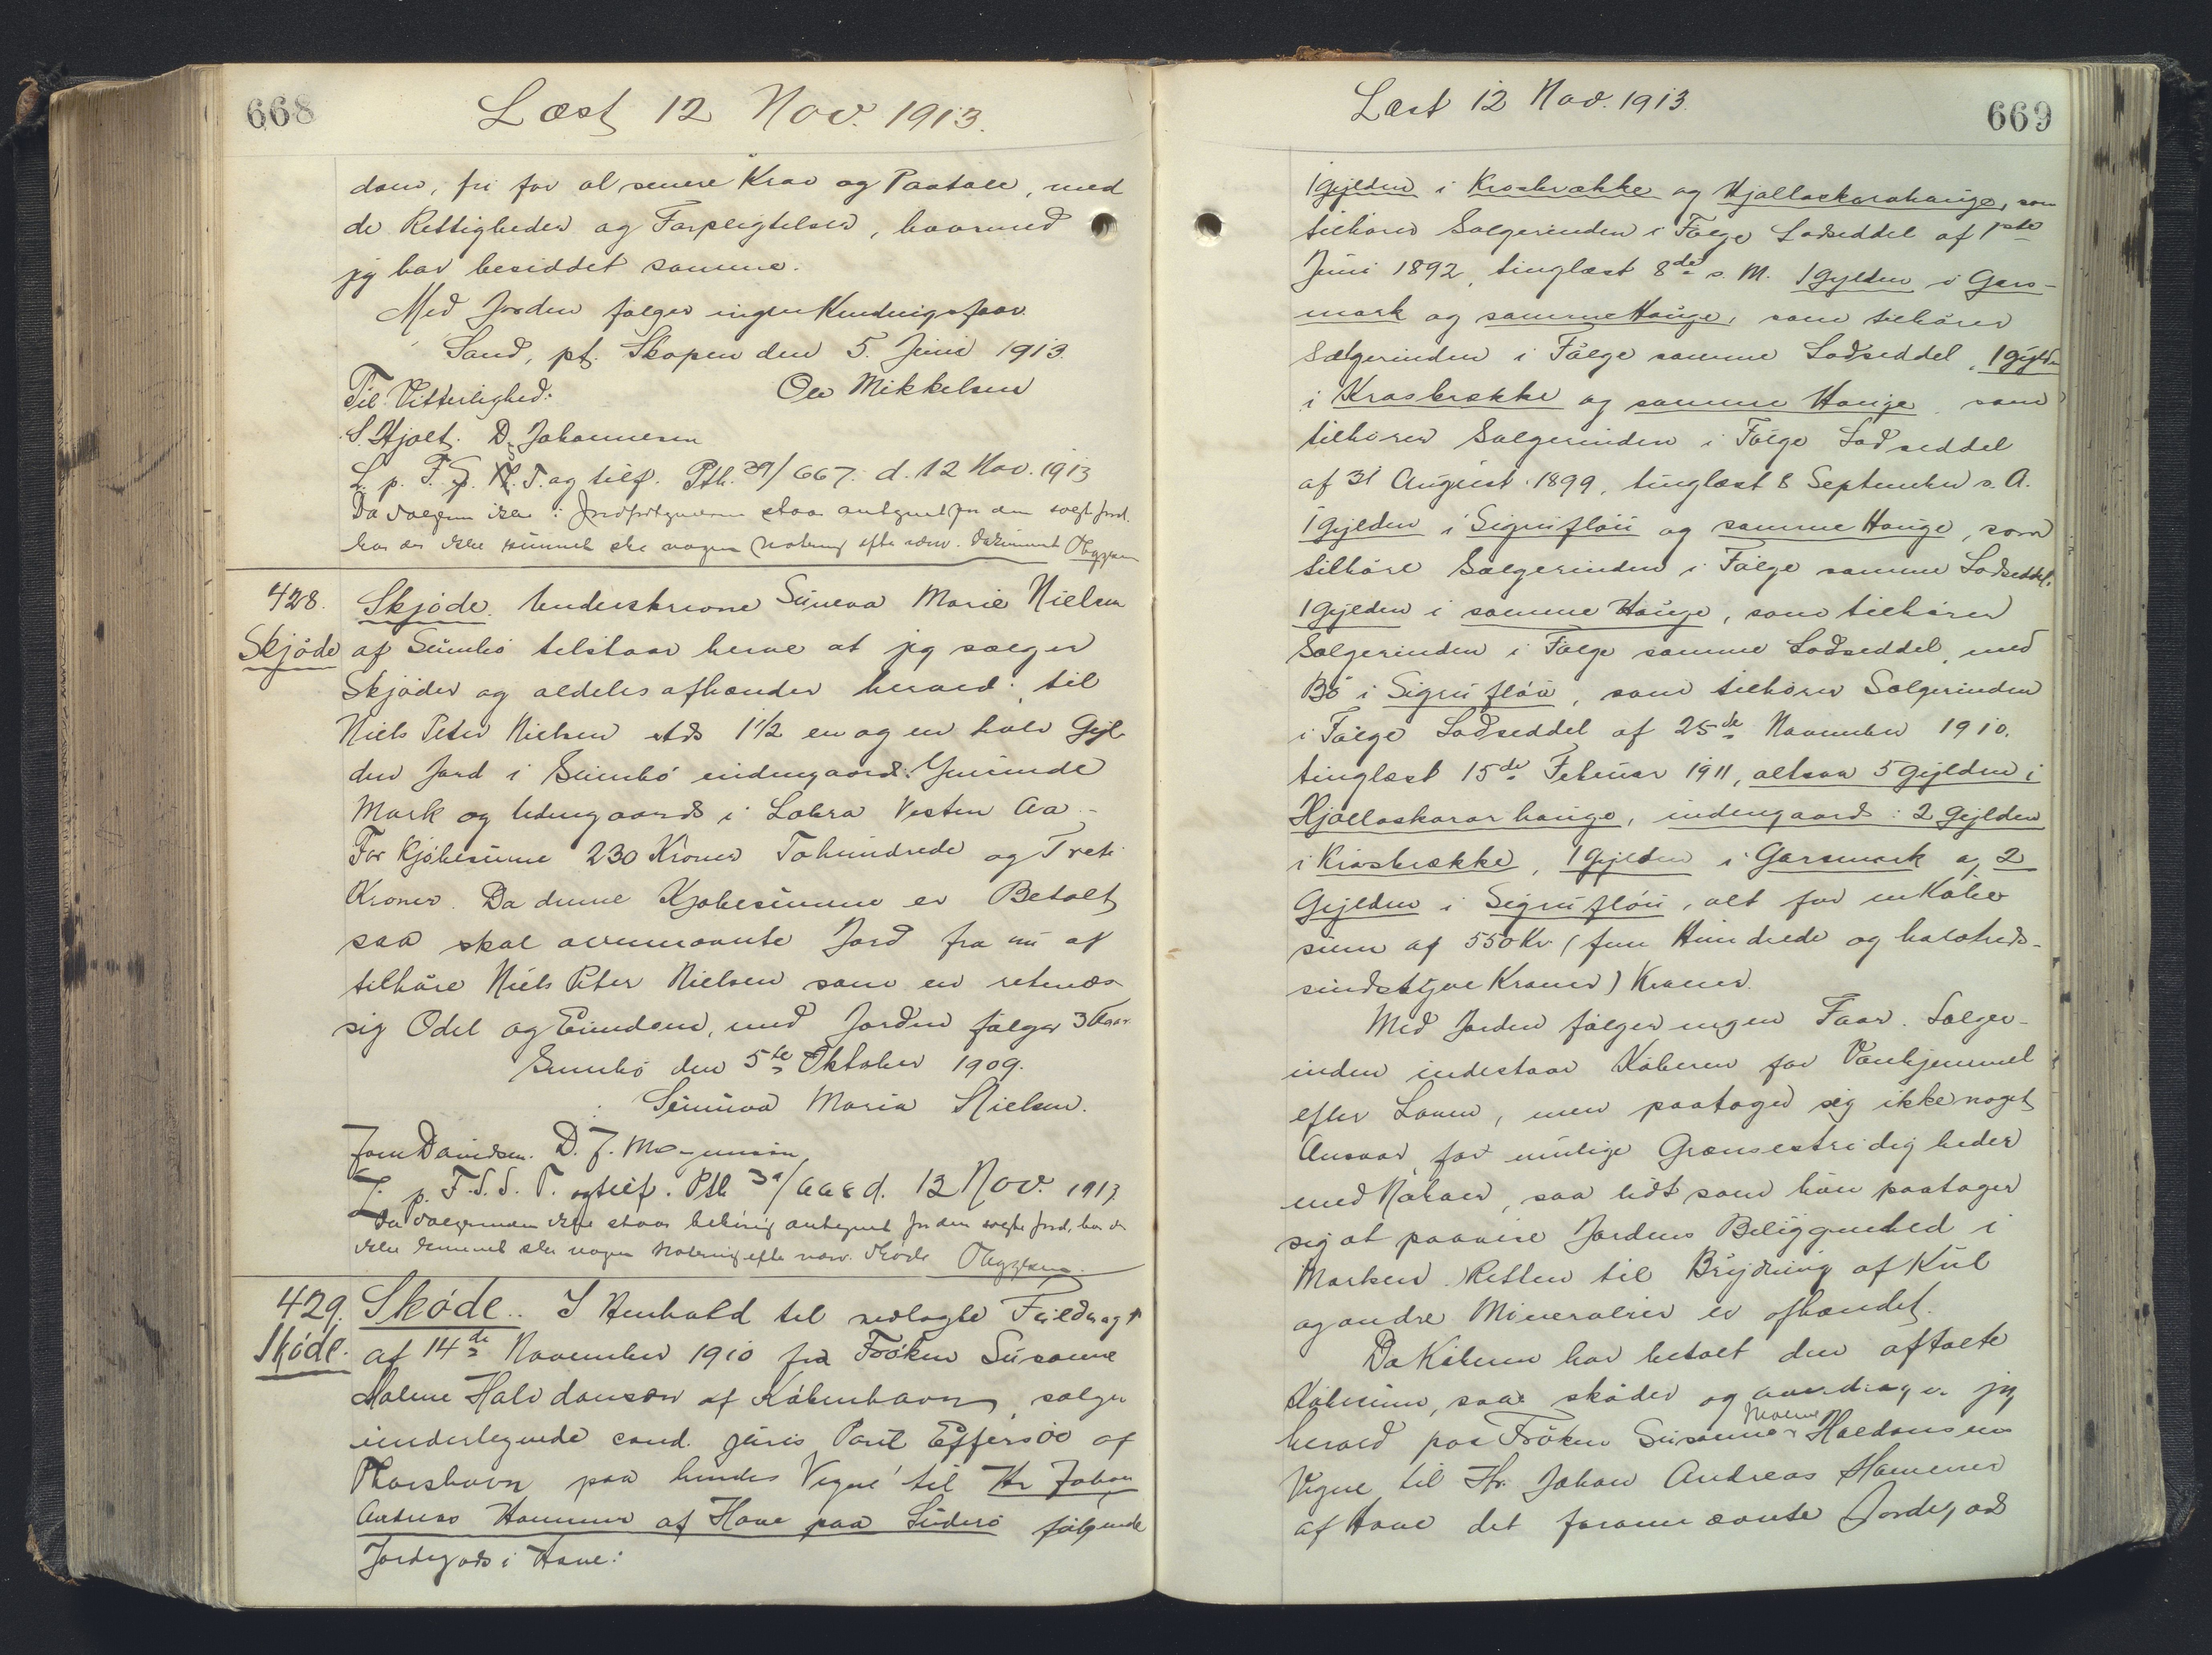 668
Læst 12 Nov. 1913.
dom, fri for al senere Krav og Paatale, med
de Rettigheder og Forpligtelser, hvormed
jeg har besiddet samme.
Med Jorden følger ingen Kendningsfaar
Sand, pt. Skopen den 5. Juni 1913.
Til Vitterlighed: Ole Mikkelsen
S. Hjalt. D. Johannesen
L. p. F. S. T. og tilf. Ptb. 39/667. d. 12 Nov. 1913
Da Sælgeren ikke i staar antegnet for den solgte Jord,
har der ikke kunnet ske nogen Notering efter nærv. Dokument
428. Skjøde. Underskrevne Sunneva Marie Nielsen
Skjøde af Sumbø tilstaar herve at jeg sælger
Skjøder og aldeles afhænder herved til
Niels Peter Nielsen 1 1/2 en og en halv Gyl
den Jord i Sumbø indengaards
Mark og Udengaards i Lobra Vesten Aa
For Kjøbesumme 230 Kroner Tohundrede og Treti
Kroner. Da denne Kjøbesumme er Betalt
saa skal ovennævnte Jord fra nu af
tilhøre Niels Peter Nielsen som en retmæs
sig Odel og Eiendom, med Jorden følger 3 Faar
Sumbø den 5te Oktober 1909.
Sunneva Maria Nielsen.
Joen Davidsen. D. J. Magnussen
L. p. F. S. S. T. og tilf. Ptb 39/668 d. 12 Nov. 1913
Da Sælgerinden ikke staar antegnet for den solgte Jord, har der
ikke kunnet ske nogen Notering efter nærv. Skøde
429. Skøde. I Henhold til vedlagte Fuldmagt
Skøde. af 14de November 1910 fra Frøken Susanne
Malene Halvdansen af København, sælger
undertegnede cand. juris Poul Effersøe af
Thorshavn paa hendes Vegne til Hr Johan
Andreas Hammer af Hove paa Suderø følgende
Jordegods i Hove:
Læst 12 Nov. 1913.
669
1 Gylden i Krosbrække og Hjallaskarahauge, som
tilhører Sælgerinden i Følge Lodseddel af 1ste
Juni 1892, tinglæst 8de s. M. 1 Gylden i Gars-
mark og samme Hauge, som tilhører
Sælgerinden i Følge samme Lodseddel, 1 Gylden
i Krosbrække og samme Hauge, som
tilhører Sælgerinden i Følge Lodseddel
af 31 August 1899, tinglæst 8 September s. A.
1 Gylden i Sigruflóu og samme Hauge, som
tilhøre Sælgerinden i Følge samme Lodseddel,
1 Gylden i samme Hauge, som tilhører
Sælgerinden i Følge samme Lodseddel, med
Bø i Sigruflóu, som tilhører Sælgerinden
i Følge Lodseddel af 25de November 1910,
tinglæst 15de Februar 1911, altsaa 5 Gylden i
Hjallaskarar hauge, indengaards: 2 Gylden
i Krosbrække, 1 Gylden i Garsmark og 2
Gylden i Sigruflóu, alt for en Købe
sum af 550 Kr. (fem Hundrede og halvtreds-
sindstyve Kroner) Kroner.
Med Jorden følger ingen Faar. Sælger-
inden indestaar Køberen for Vanhjemmel
efter Loven, men paatager sig ikke noget
Ansvar for mulige Grænsestridigheder
med Naboer, saa lidt som hun paatager
sig at paavise Jordens Beliggenhed i
Marken. Retten til Brydning af Kul
og andre Mineralier er afhændet.
Da Køberen har betalt den aftalte
Købesum, saa skøder og overdrager jeg
herved paa Frøken Susanne Malene Haldansens
Vegne til Hr. Johan Andreas Hammer
af Hove det forannævnte Jordegods